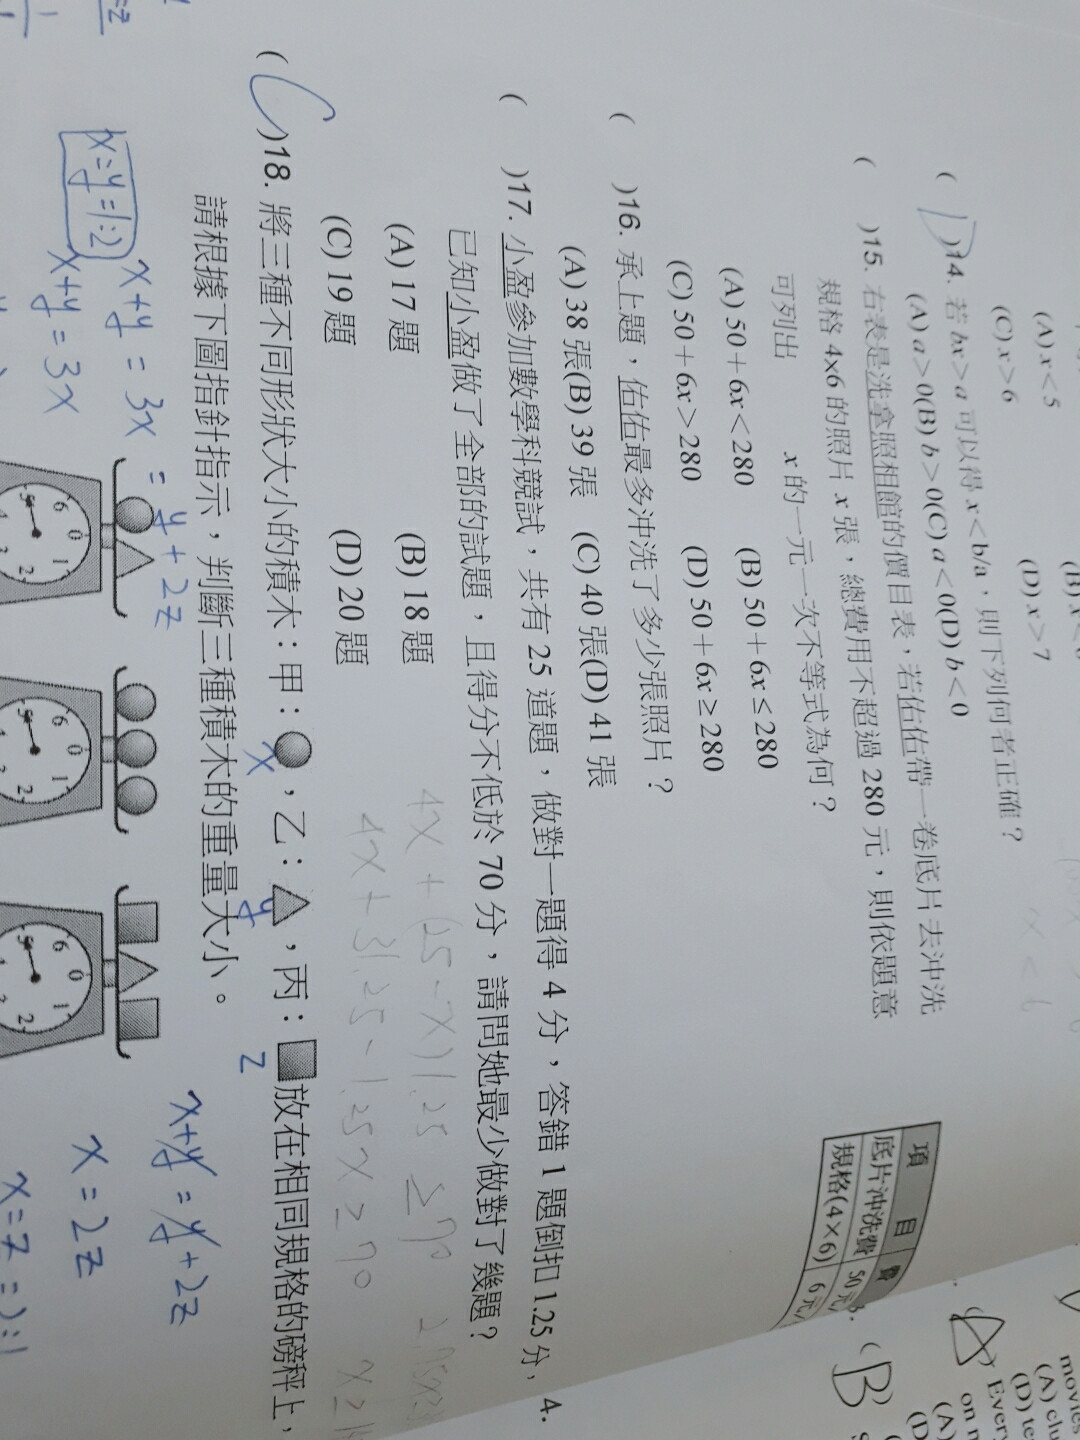 (A) x<5
(C) x>6
(D) x>7
(D)14. 若 bx>a 可以得 x<b/a，則下列何者正確？
(A) a>0(B) b>0(C) a<0(D) b<0
( )15. 右表是洗拿照相館的價目表，若佑佑帶一卷底片去沖洗
規格 4x6 的照片 x 張，總費用不超過 280 元，則依題意
可列出 x 的一元一次不等式為何？
(A) 50+6x<280 (B) 50+6x≤280
(C) 50+6x>280 (D) 50+6x≥280
項目 費
底片沖洗費 50元/
規格(4×6) 6元/
( )16. 承上題，佑佑最多沖洗了多少張照片？
(A) 38 張(B) 39 張 (C) 40 張(D) 41 張
( )17. 小盈參加數學科競試，共有 25 道題，做對一題得 4 分，答錯 1 題倒扣 1.25 分，
已知小盈做了全部的試題，且得分不低於 70 分，請問她最少做對了幾題？
(A) 17 題 (B) 18 題
(C) 19 題 (D) 20 題
(C)18. 將三種不同形狀大小的積木：甲：，乙：，丙：放在相同規格的磅秤上，
x y z
請根據下圖指針指示，判斷三種積木的重量大小。
x+y = 3x = y+2z
x+y = 3x
x=y=1:2
x+y = y+2z
x = 2z
x=z =2:1
6 0 1 2 5
6 0 1 2 5
6 0 1 2 5
4.
(B)
movies
(A) clu
(D) te
Every
on n
(A)
(D